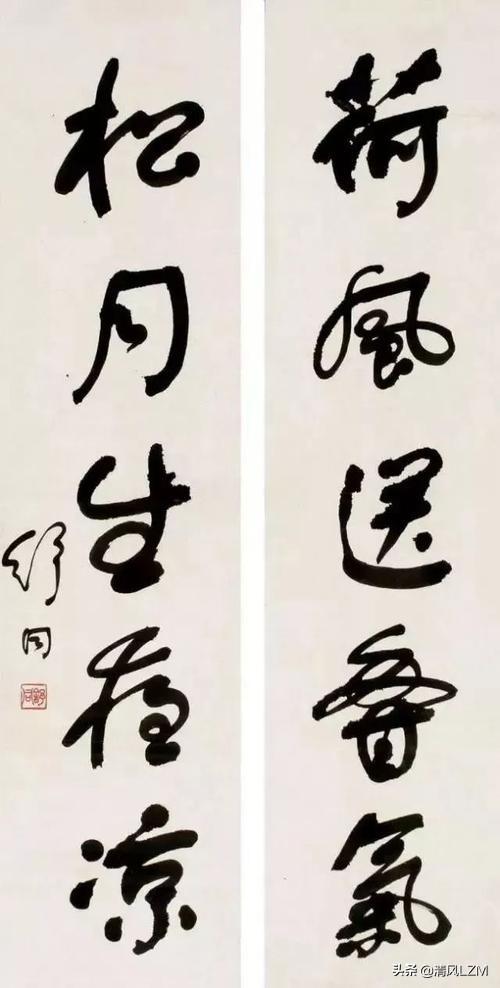 荷風送香氣
松月生夜凉
舒同
舒同
头条 @清风LZM